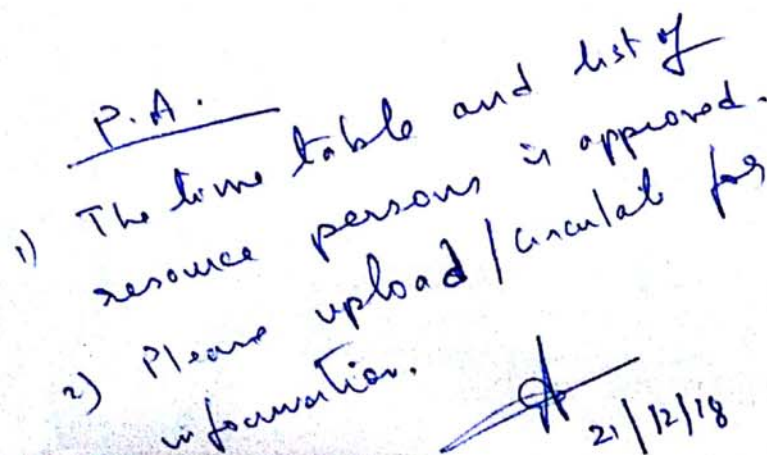 P.A.
1) The time table and list of
resource persons is approved.
2) Please upload/circulate for
information.
21/12/18